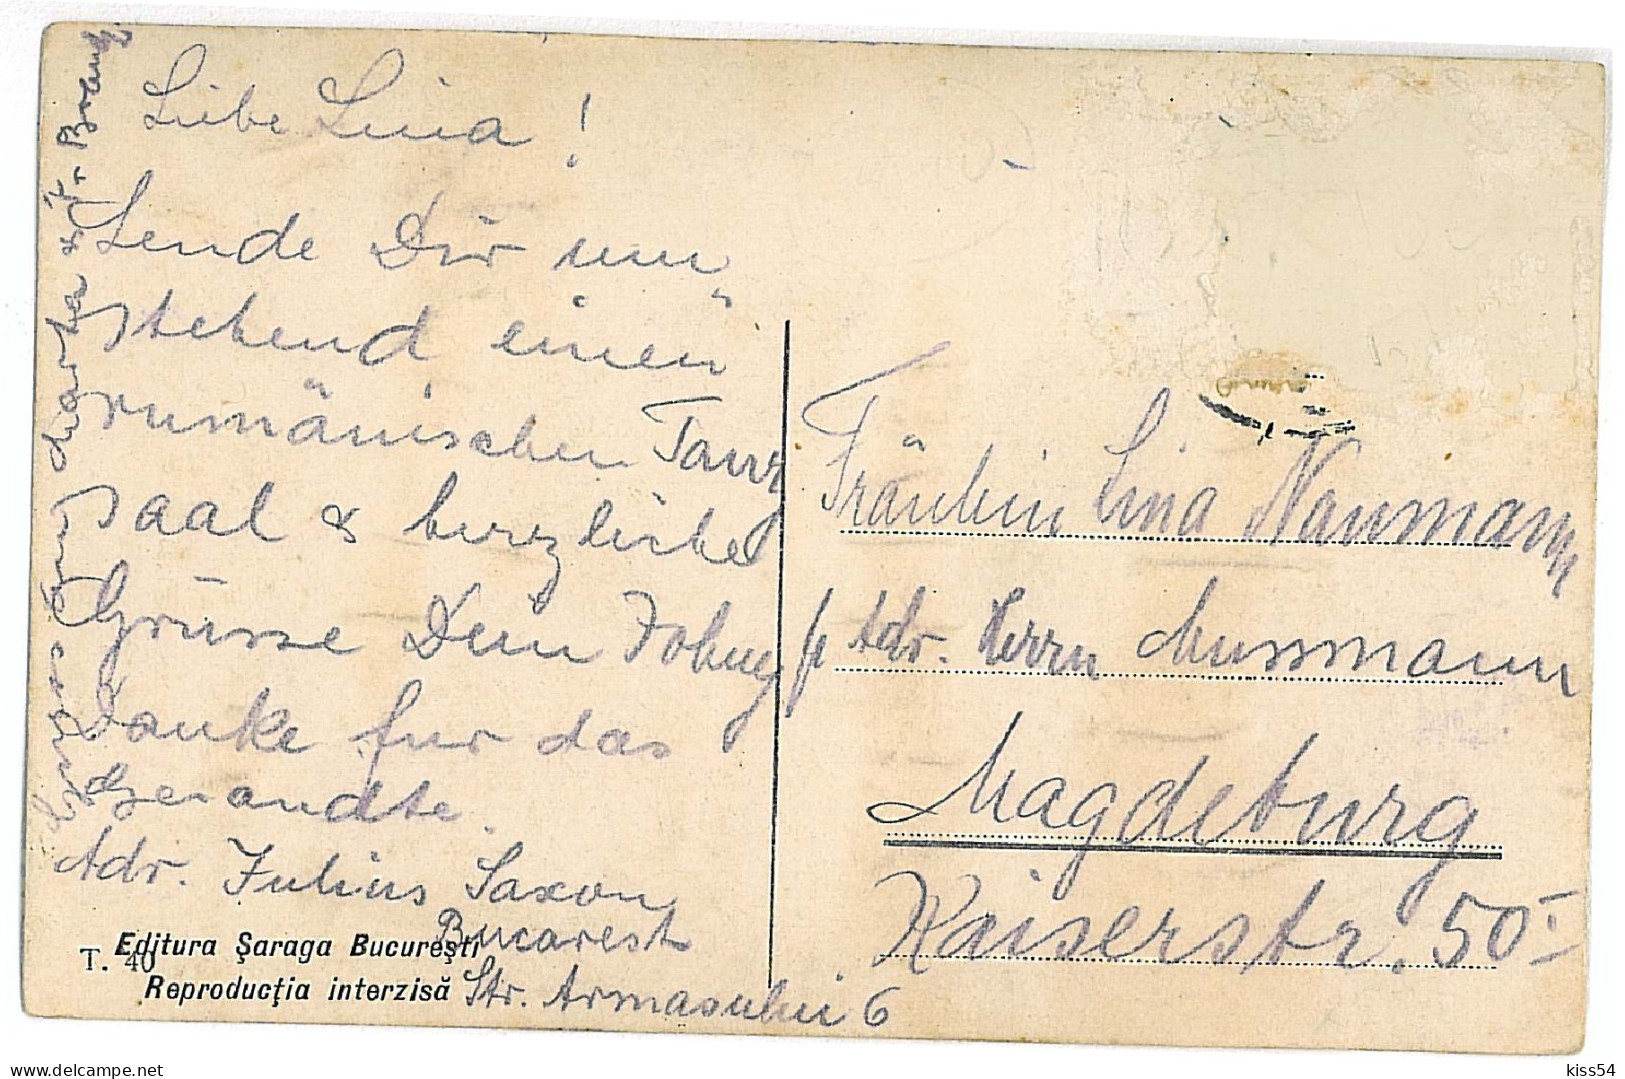 Liebe Lina!
Sende Dir um
stehend einen
rumänischen Tanz
saal & herzliche
Grüsse Dein
Danke für das
Gesandte.
Adr. Julius Saxon
Bucarest
Str. Armasului 6
Editura Şaraga Bucureşti
T. 40
Reproducţia interzisă
Fräulein Lina Naumann
p Adr. Herrn Mussmann
Magdeburg
Kaiserstr. 50
kiss54